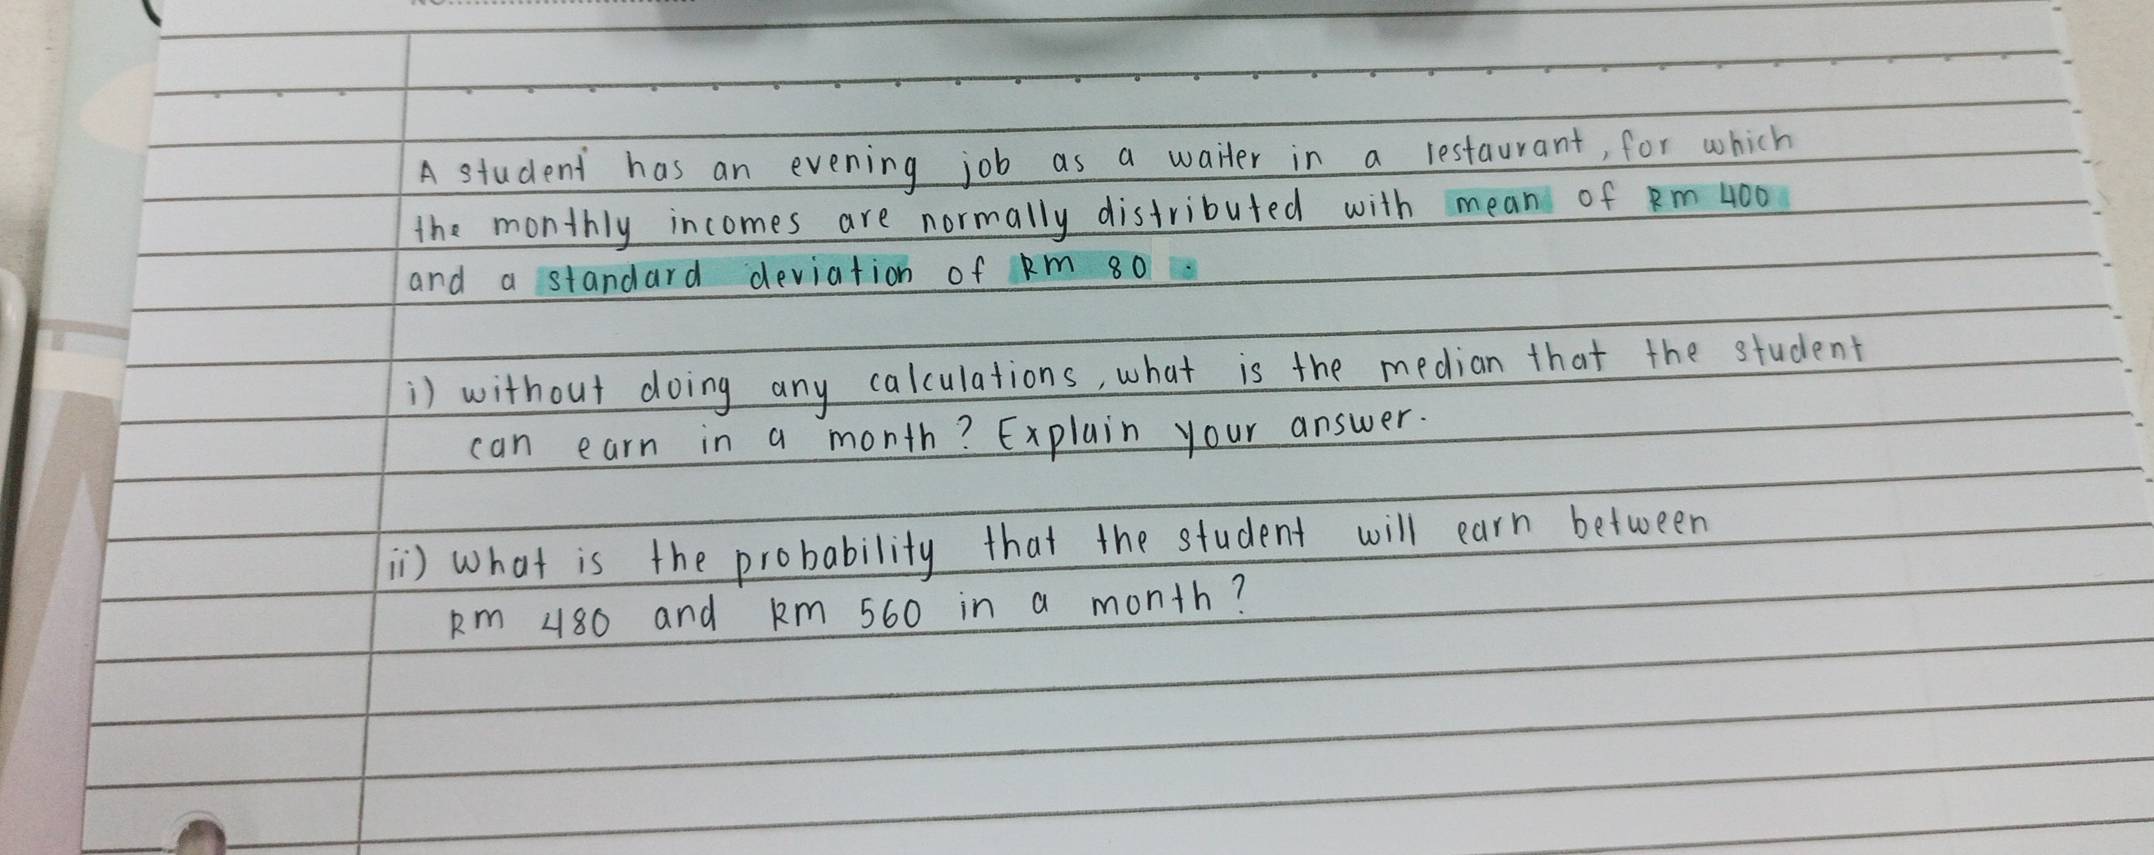 A student has an evening job as a waiter in a restaurant, for which
the monthly incomes are normally distributed with mean of RM 400
and a standard deviation of RM 80.
i) without doing any calculations, what is the median that the student
can earn in a month? Explain your answer.
ii) what is the probability that the student will earn between
RM 480 and RM 560 in a month?